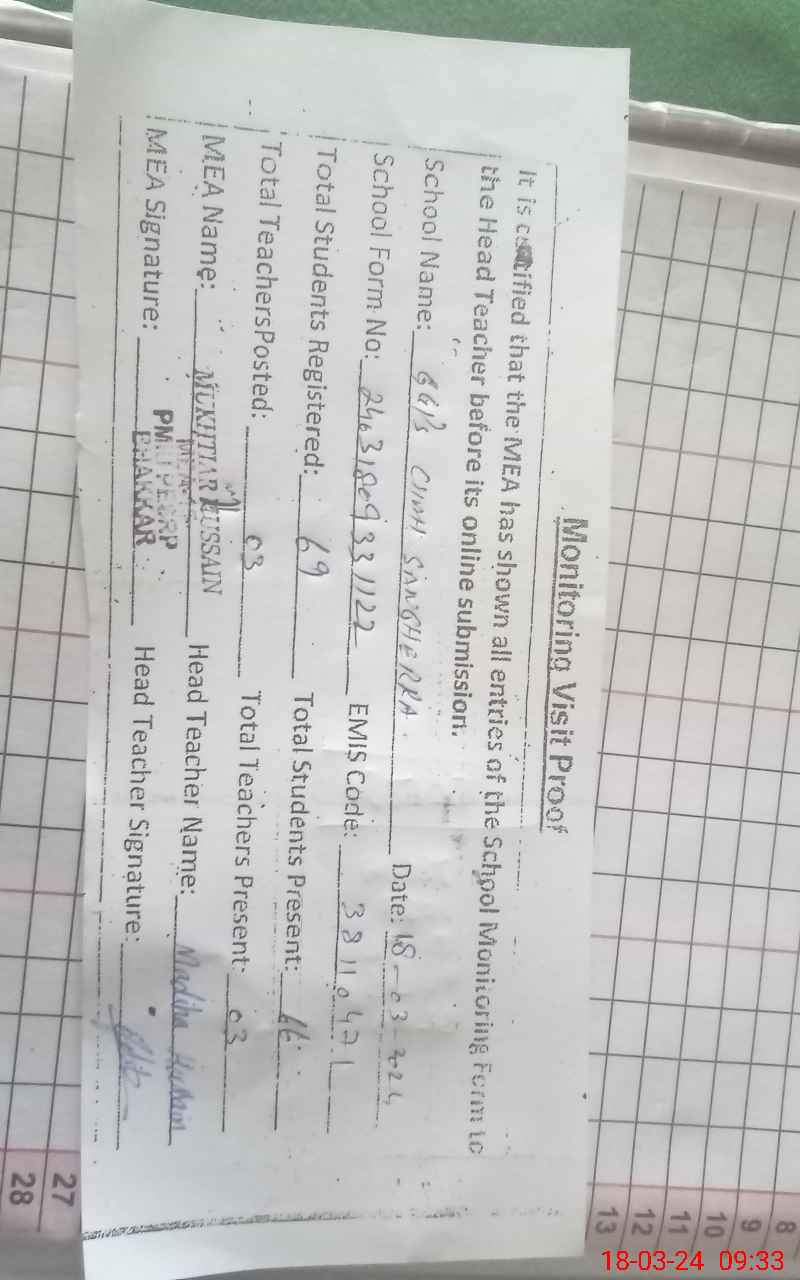 Monitoring Visit Proof
It is certified that the MEA has shown all entries of the School Monitoring Form to
the Head Teacher before its online submission.
School Name: GGPS CHAH SANGHERRA. Date: 18-03-2024
School Form No: EMIS Code:
Total Students Registered: 69 Total Students Present:
Total TeachersPosted: 03 Total Teachers Present: 03
MEA Name: MUKHTIAR HUSSAIN Head Teacher Name: Madiha
MEA Signature: BHAKKAR Head Teacher Signature:
8
9
10
11
12
13
27
28
18-03-24 09:33